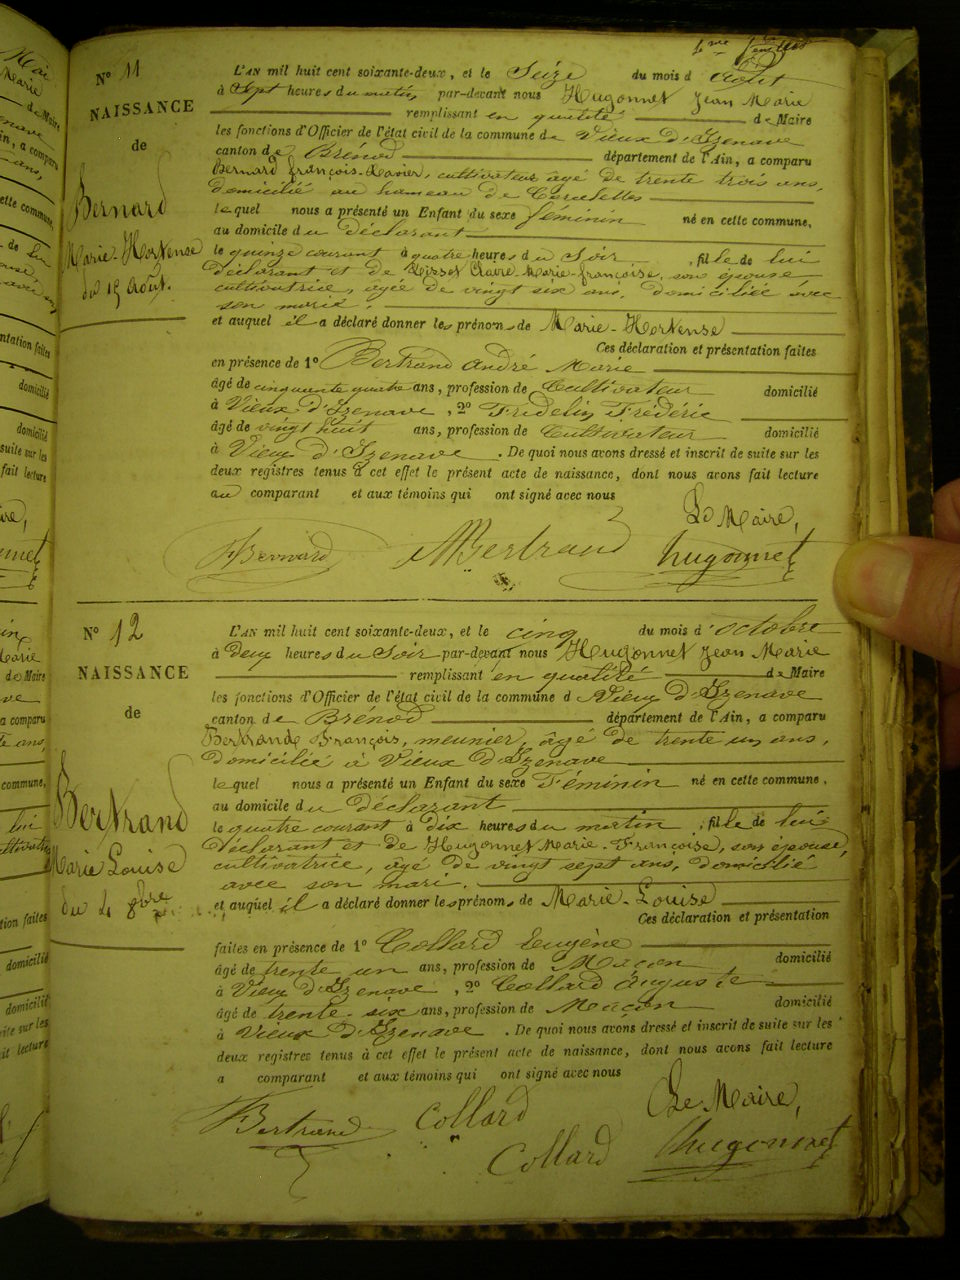 N° 11
NAISSANCE
de
Bernard
Marie-Hortense
du 15 Août.
L'AN mil huit cent soixante-deux, et le Seize du mois d'Août
à Sept heures du matin, par-devant nous Hugonnet Jean Marie
remplissant en qualité de Maire
les fonctions d'Officier de l'état civil de la commune de Vieux d'Izenave
canton de Brénod département de l'Ain, a comparu
Bernard françois-Xavier, cultivateur âgé de trente trois ans,
domicilié au hameau de
lequel nous a présenté un Enfant du sexe féminin né en cette commune,
au domicile du déclarant
le quinze courant à quatre heures du Soir, fille de lui
déclarant et de Claire Marie françoise, son épouse
cultivatrice, agée de vingt six ans, domiciliée avec
son mari.
et auquel il a déclaré donner les prénoms de Marie-Hortense
Ces déclaration et présentation faites
en présence de 1° Bertrand André Marie
âgé de cinquante quatre ans, profession de Cultivateur domicilié
à Vieux d'Izenave, 2° Fridelin Frédéric
âgé de vingt huit ans, profession de Cultivateur domicilié
à Vieux d'Izenave. De quoi nous avons dressé et inscrit de suite sur les
deux registres tenus à cet effet le présent acte de naissance, dont nous avons fait lecture
au comparant et aux témoins qui ont signé avec nous
Le Maire,
Bernard Bertrand Hugonnet
N° 12
NAISSANCE
de
Bertrand
Marie Louise
du 4 8bre
L'AN mil huit cent soixante-deux, et le cinq du mois d'octobre
à Deux heures du Soir par-devant nous Hugonnet Jean Marie
remplissant en qualité de Maire
les fonctions d'Officier de l'état civil de la commune d Vieux d'Izenave
canton de Brénod département de l'Ain, a comparu
Bertrand François, meunier, âgé de trente un ans,
domicilié à Vieux d'Izenave
lequel nous a présenté un Enfant du sexe Féminin né en cette commune,
au domicile du déclarant
le quatre courant à dix heures du matin, fille de lui
déclarant et de Hugonnet Marie-Françoise, son épouse,
cultivatrice, agé de vingt sept ans, domicilié
avec son mari,
et auquel il a déclaré donner les prénoms de Marie-Louise
Ces déclaration et présentation
faites en présence de 1° Collard Eugène
âgé de trente un ans, profession de Maçon domicilié
à Vieux d'Izenave, 2° Collard Auguste
âgé de trente-six ans, profession de Maçon domicilié
à Vieux d'Izenave. De quoi nous avons dressé et inscrit de suite sur les
deux registres tenus à cet effet le présent acte de naissance, dont nous avons fait lecture
a comparant et aux témoins qui ont signé avec nous
Le Maire,
Bertrand Collard
Collard Hugonnet